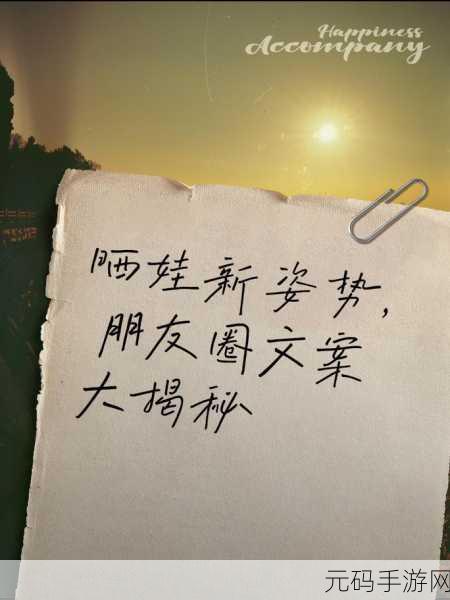 Happiness
Accompany
晒娃新姿势，
朋友圈文案
大揭秘
元码手游网